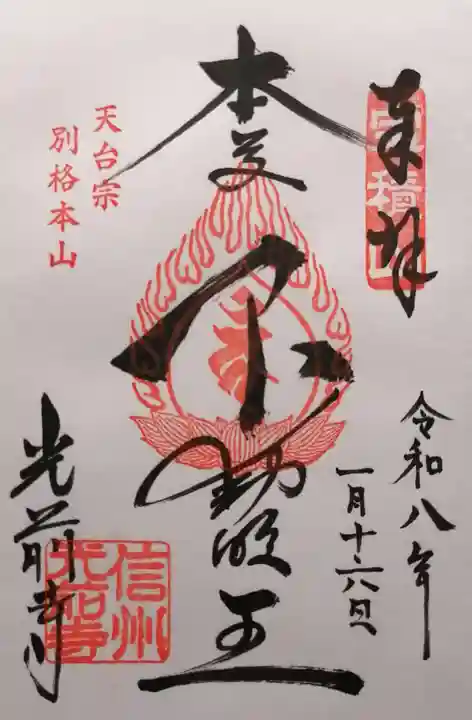 奉拝
宝積山
令和八年
一月十六日
本尊
不動明王
天台宗
別格本山
光前寺
信州
光前寺